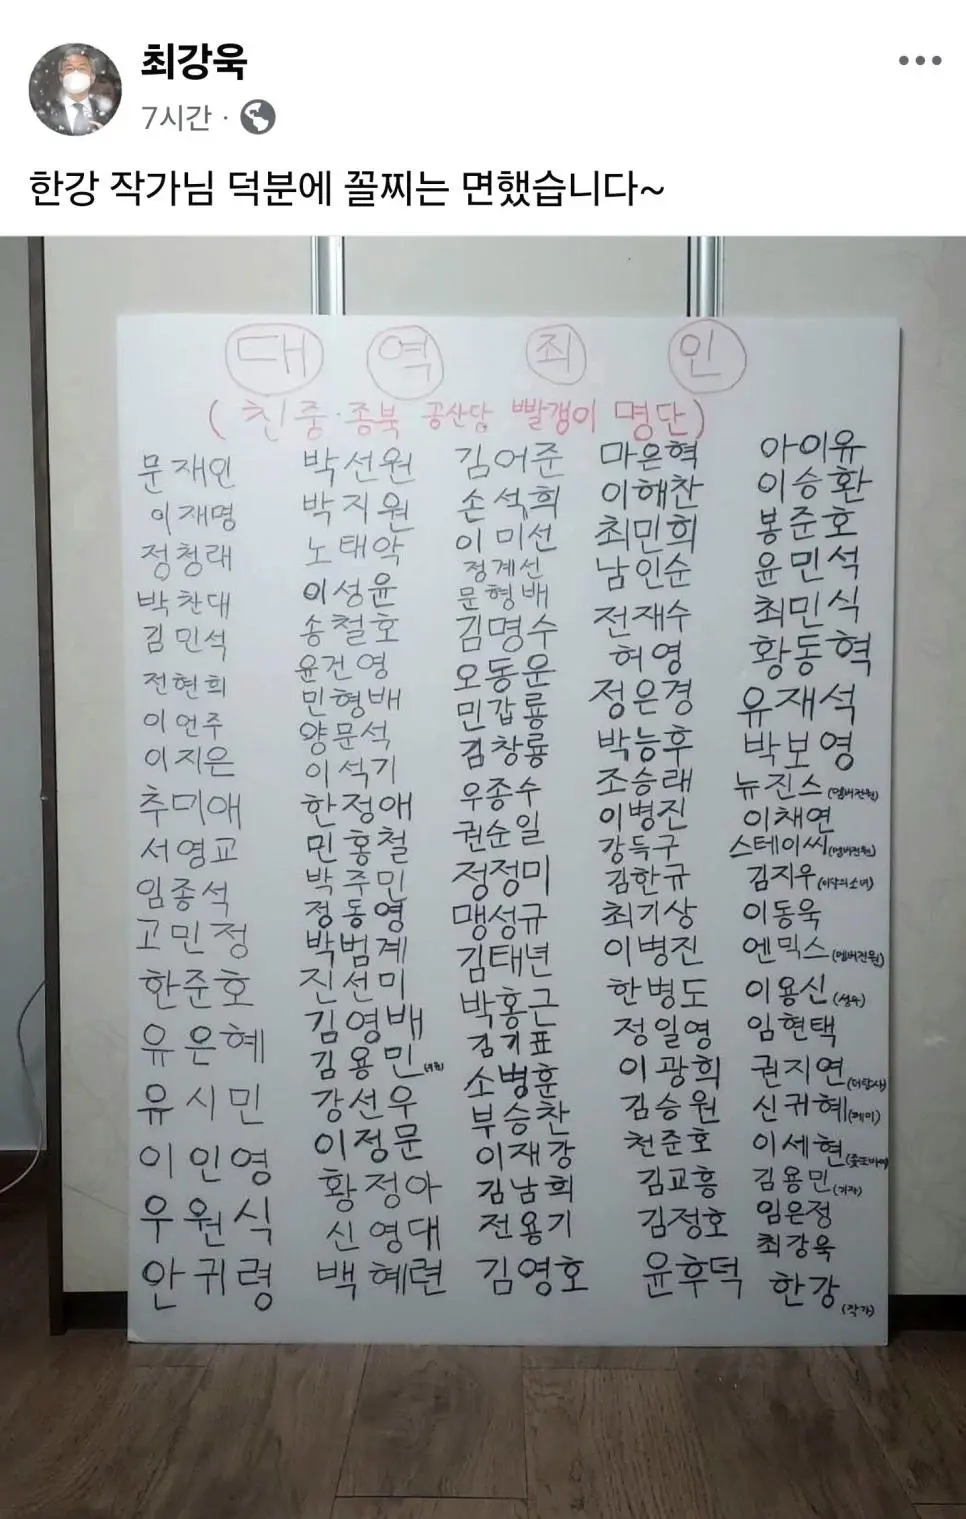 최강욱
7시간
한강 작가님 덕분에 꼴찌는 면했습니다~
대 역 죄 인
(친중·종북 공산당 빨갱이 명단)
문재인
이재명
정청래
박찬대
김민석
전현희
이언주
이지은
추미애
서영교
임종석
고민정
한준호
유은혜
유시민
이인영
우원식
안귀령
박선원
박지원
노태악
이성윤
송철호
윤건영
민형배
양문석
이석기
한정애
민홍철
박주민
정동영
박범계
진선미
김영배
김용민
강선우
이정문
황정아
신영대
백혜련
김어준
손석희
이미선
정계선
문형배
김명수
오동운
민갑룡
김창룡
우종수
권순일
정정미
맹성규
김태년
박홍근
김기표
소병훈
부승찬
이재강
김남희
전용기
김영호
마은혁
이해찬
최민희
남인순
전재수
허영
정은경
박능후
조승래
이병진
강득구
김한규
최기상
이병진
한병도
정일영
이광희
김승원
천준호
김교흥
김정호
윤후덕
아이유
이승환
봉준호
윤민석
최민식
황동혁
유재석
박보영
뉴진스(멤버전원)
이채연
스테이씨(멤버전원)
김지우(이달의소녀)
이동욱
엔믹스(멤버전원)
이용신(성우)
임현택
권지연(더탐사)
신귀혜(레미)
이세현
김용민(기자)
임은정
최강욱
한강(작가)